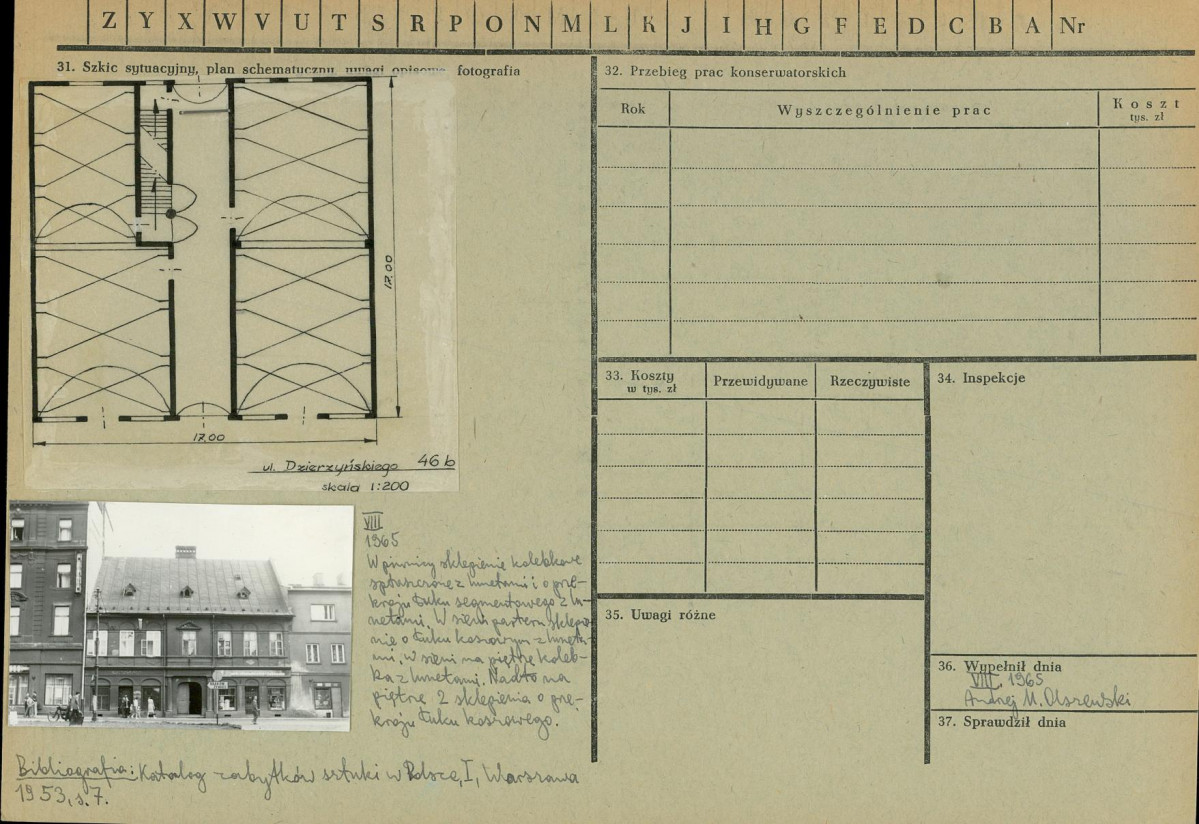 Z Y X W V U T S R P O N M L K J I H G F E D C B A Nr
31. Szkic sytuacyjny, plan schematyczny, uwagi opisowe, fotografia
17.00
17.00
ul. Dzierżyńskiego 46 b
skala 1:200
VIII
1965
W piwnicy sklepienie kolebkowe
spłaszczone z lunetami i o prze-
kroju łuku segmentowego z lu-
netami. W sieni parteru sklepie-
nie o łuku koszowym z luneta-
mi, w sieni na piętrze koleb-
ka z lunetami. Nadto na
piętrze 2 sklepienia o prze-
kroju łuku koszowego.
Bibliografia: Katalog zabytków sztuki w Polsce, I, Warszawa
1953, s. 7.
32. Przebieg prac konserwatorskich
Rok
Wyszczególnienie prac
Koszt
tys. zł
33. Koszty
w tys. zł
Przewidywane
Rzeczywiste
34. Inspekcje
35. Uwagi różne
36. Wypełnił dnia
VIII, 1965
Andrzej M. Olszewski
37. Sprawdził dnia